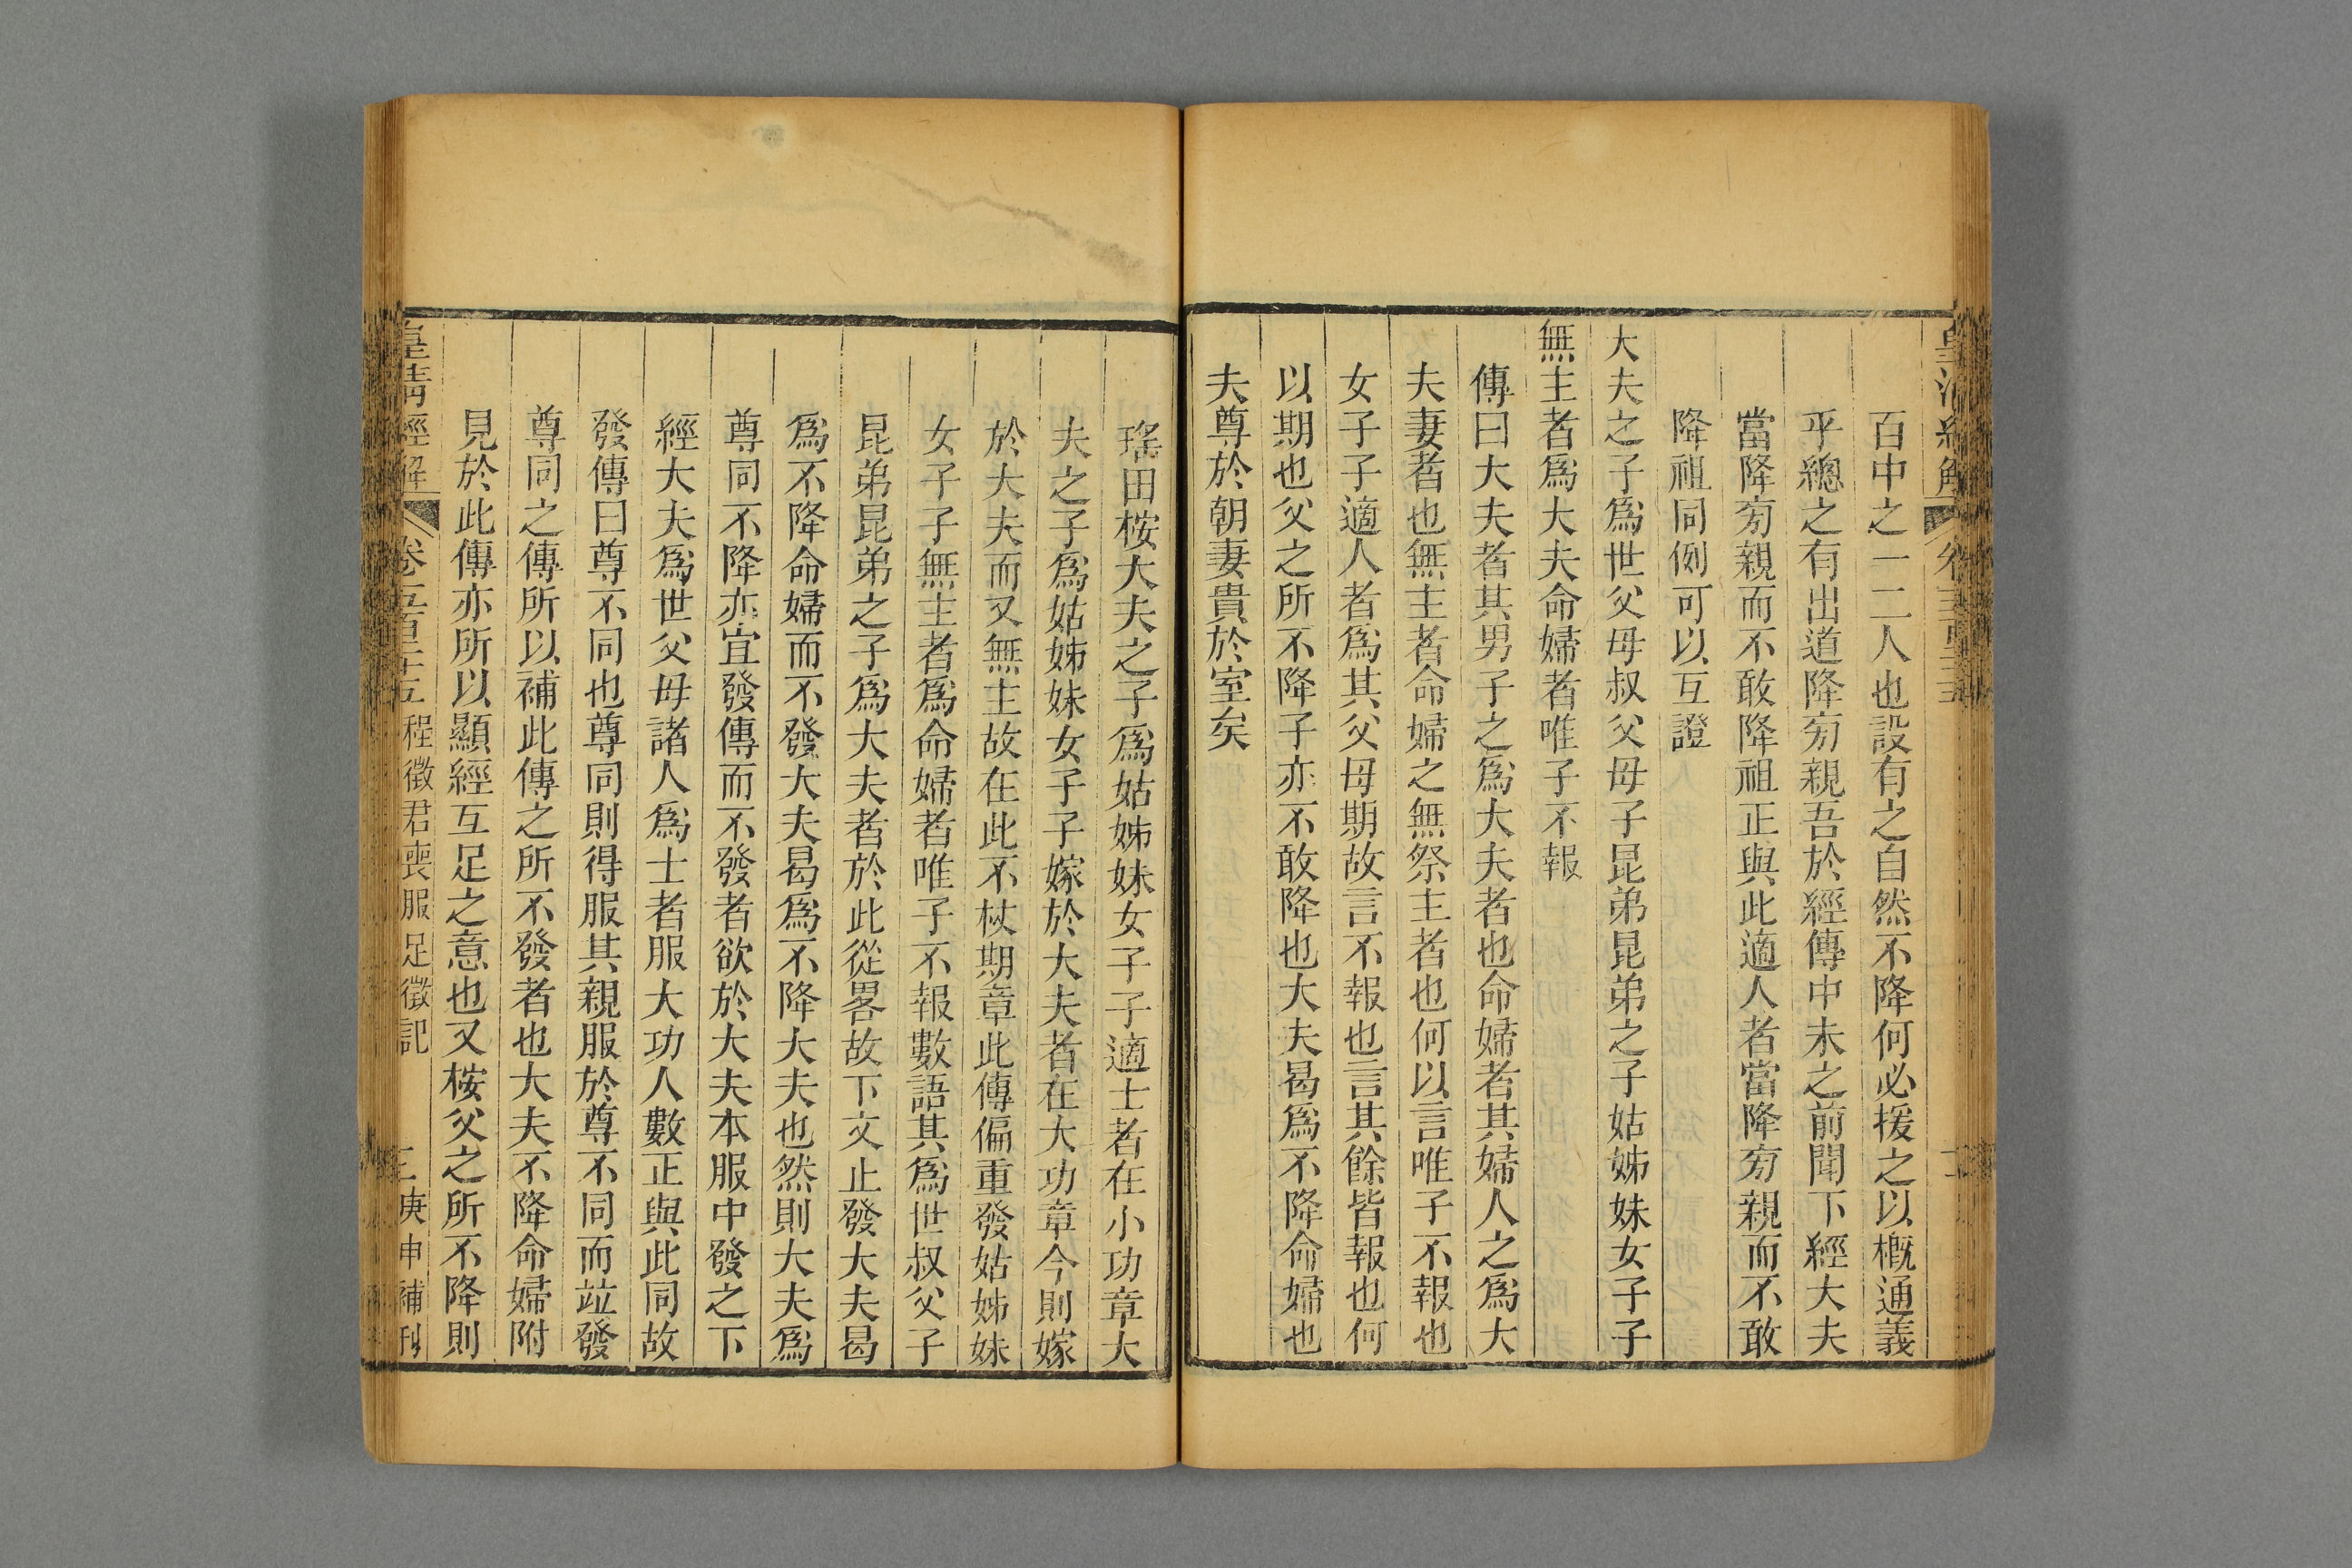 百中之一二人也設有之自然不降何必援之以槪通義
乎總之有出道降㫄親吾於經傳中未之前聞下經大夫
當降㫄親而不敢降祖正與此適人者當降㫄親而不敢
降祖同例可以互證
大夫之子爲世父母叔父母子昆弟昆弟之子姑姊妹女子子
無主者爲大夫命婦者唯子不報
傳曰大夫者其男子之爲大夫者也命婦者其婦人之爲大
夫妻者也無主者命婦之無祭主者也何以言唯子不報也
女子子適人者爲其父母期故言不報也言其餘皆報也何
以期也父之所不降子亦不敢降也大夫曷爲不降命婦也
夫尊於朝妻貴於室矣
瑤田桉大夫之子爲姑姊妹女子子適士者在小功章大
夫之子爲姑姊妹女子子嫁於大夫者在大功章今則嫁
於大夫而又無主故在此不杖期章此傳偏重發姑姊妹
女子子無主者爲命婦者唯子不報數語其爲世叔父子
昆弟昆弟之子爲大夫者於此從畧故下文止發大夫曷
爲不降命婦而不發大夫曷爲不降大夫也然則大夫爲
尊同不降亦宜發傳而不發者欲於大夫本服中發之下
經大夫爲世父母諸人爲士者服大功人數正與此同故
發傳曰尊不同也尊同則得服其親服於尊不同而竝發
尊同之傳所以補此傳之所不發者也大夫不降命婦附
見於此傳亦所以顯經互足之意也又桉父之所不降則
皇淸經解 卷五百二十五 程徵君喪服足徵記 庚申補刊